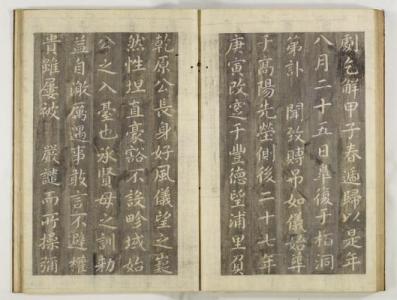 劇乞解甲子春遞歸以是年
八月二十五日卒復于栢洞
第訃 聞致賻吊如儀始葬
于高陽先塋側後二十七年
庚寅改窆于豐德望浦里負
乾原公長身好風儀望之嶷
然性坦直豪豁不設畛域始
公之入臺也承賢母之訓勅
益自激厲遇事敢言不避權
貴雖屢被 嚴譴而所操彌